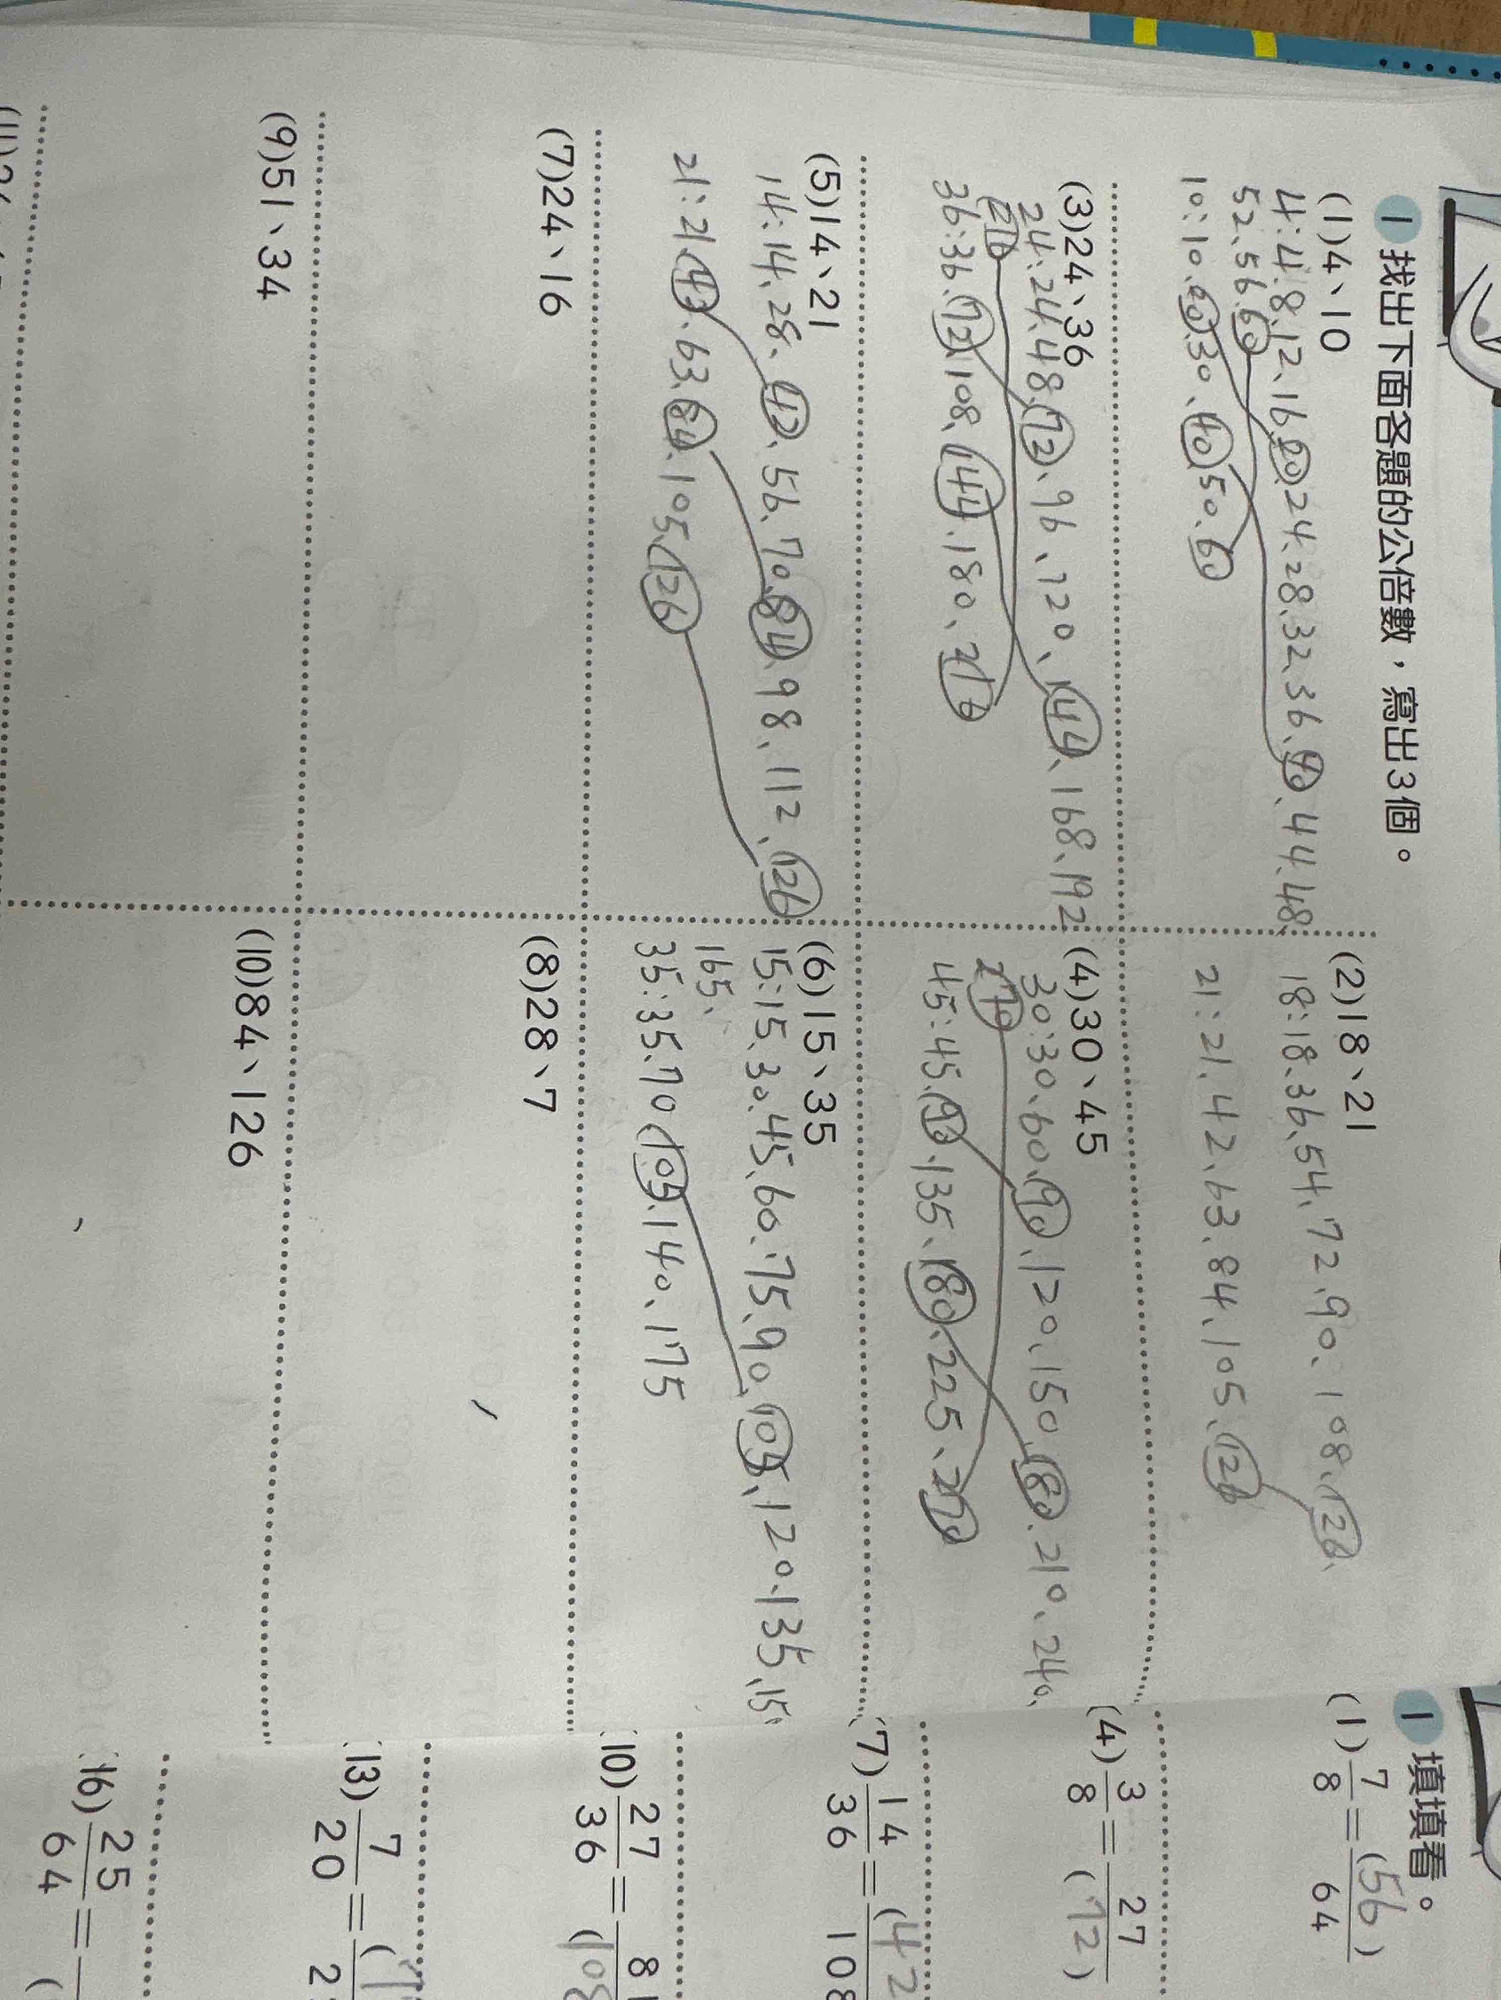 1 找出下面各題的公倍數，寫出3個。
(1)4、10
4:4.8.12、16.20.24.28.32.36、40、44.48.
52、56.60
10:10.20.30、40、50、60
(2)18、21
18:18.36、54、72.90、108、126、
21:21.42、63.84.105、126
(3)24、36
24:24.48.72、96、120、144、168、192
216
36:36.72、108、144.180、216
(4)30、45
30:30、60、90、120、150、180、210、240、
270
45:45、90.135、180、225、270
(5)14、21
14:14、28、42、56、70、84、98、112、126
21:21、42、63、84、105、126
(6)15、35
15:15、30.45、60、75、90、105、120、135、150
165、
35:35.70、105.140、175
(7)24、16
(8)28、7
(9)51、34
(10)84、126
1 填填看。
(1) 7/8=(56)/64
(4) 3/8=27/(72)
(7) 14/36=(42)/108
(10) 27/36=81/(108
(13) 7/20=(
(16) 25/64=